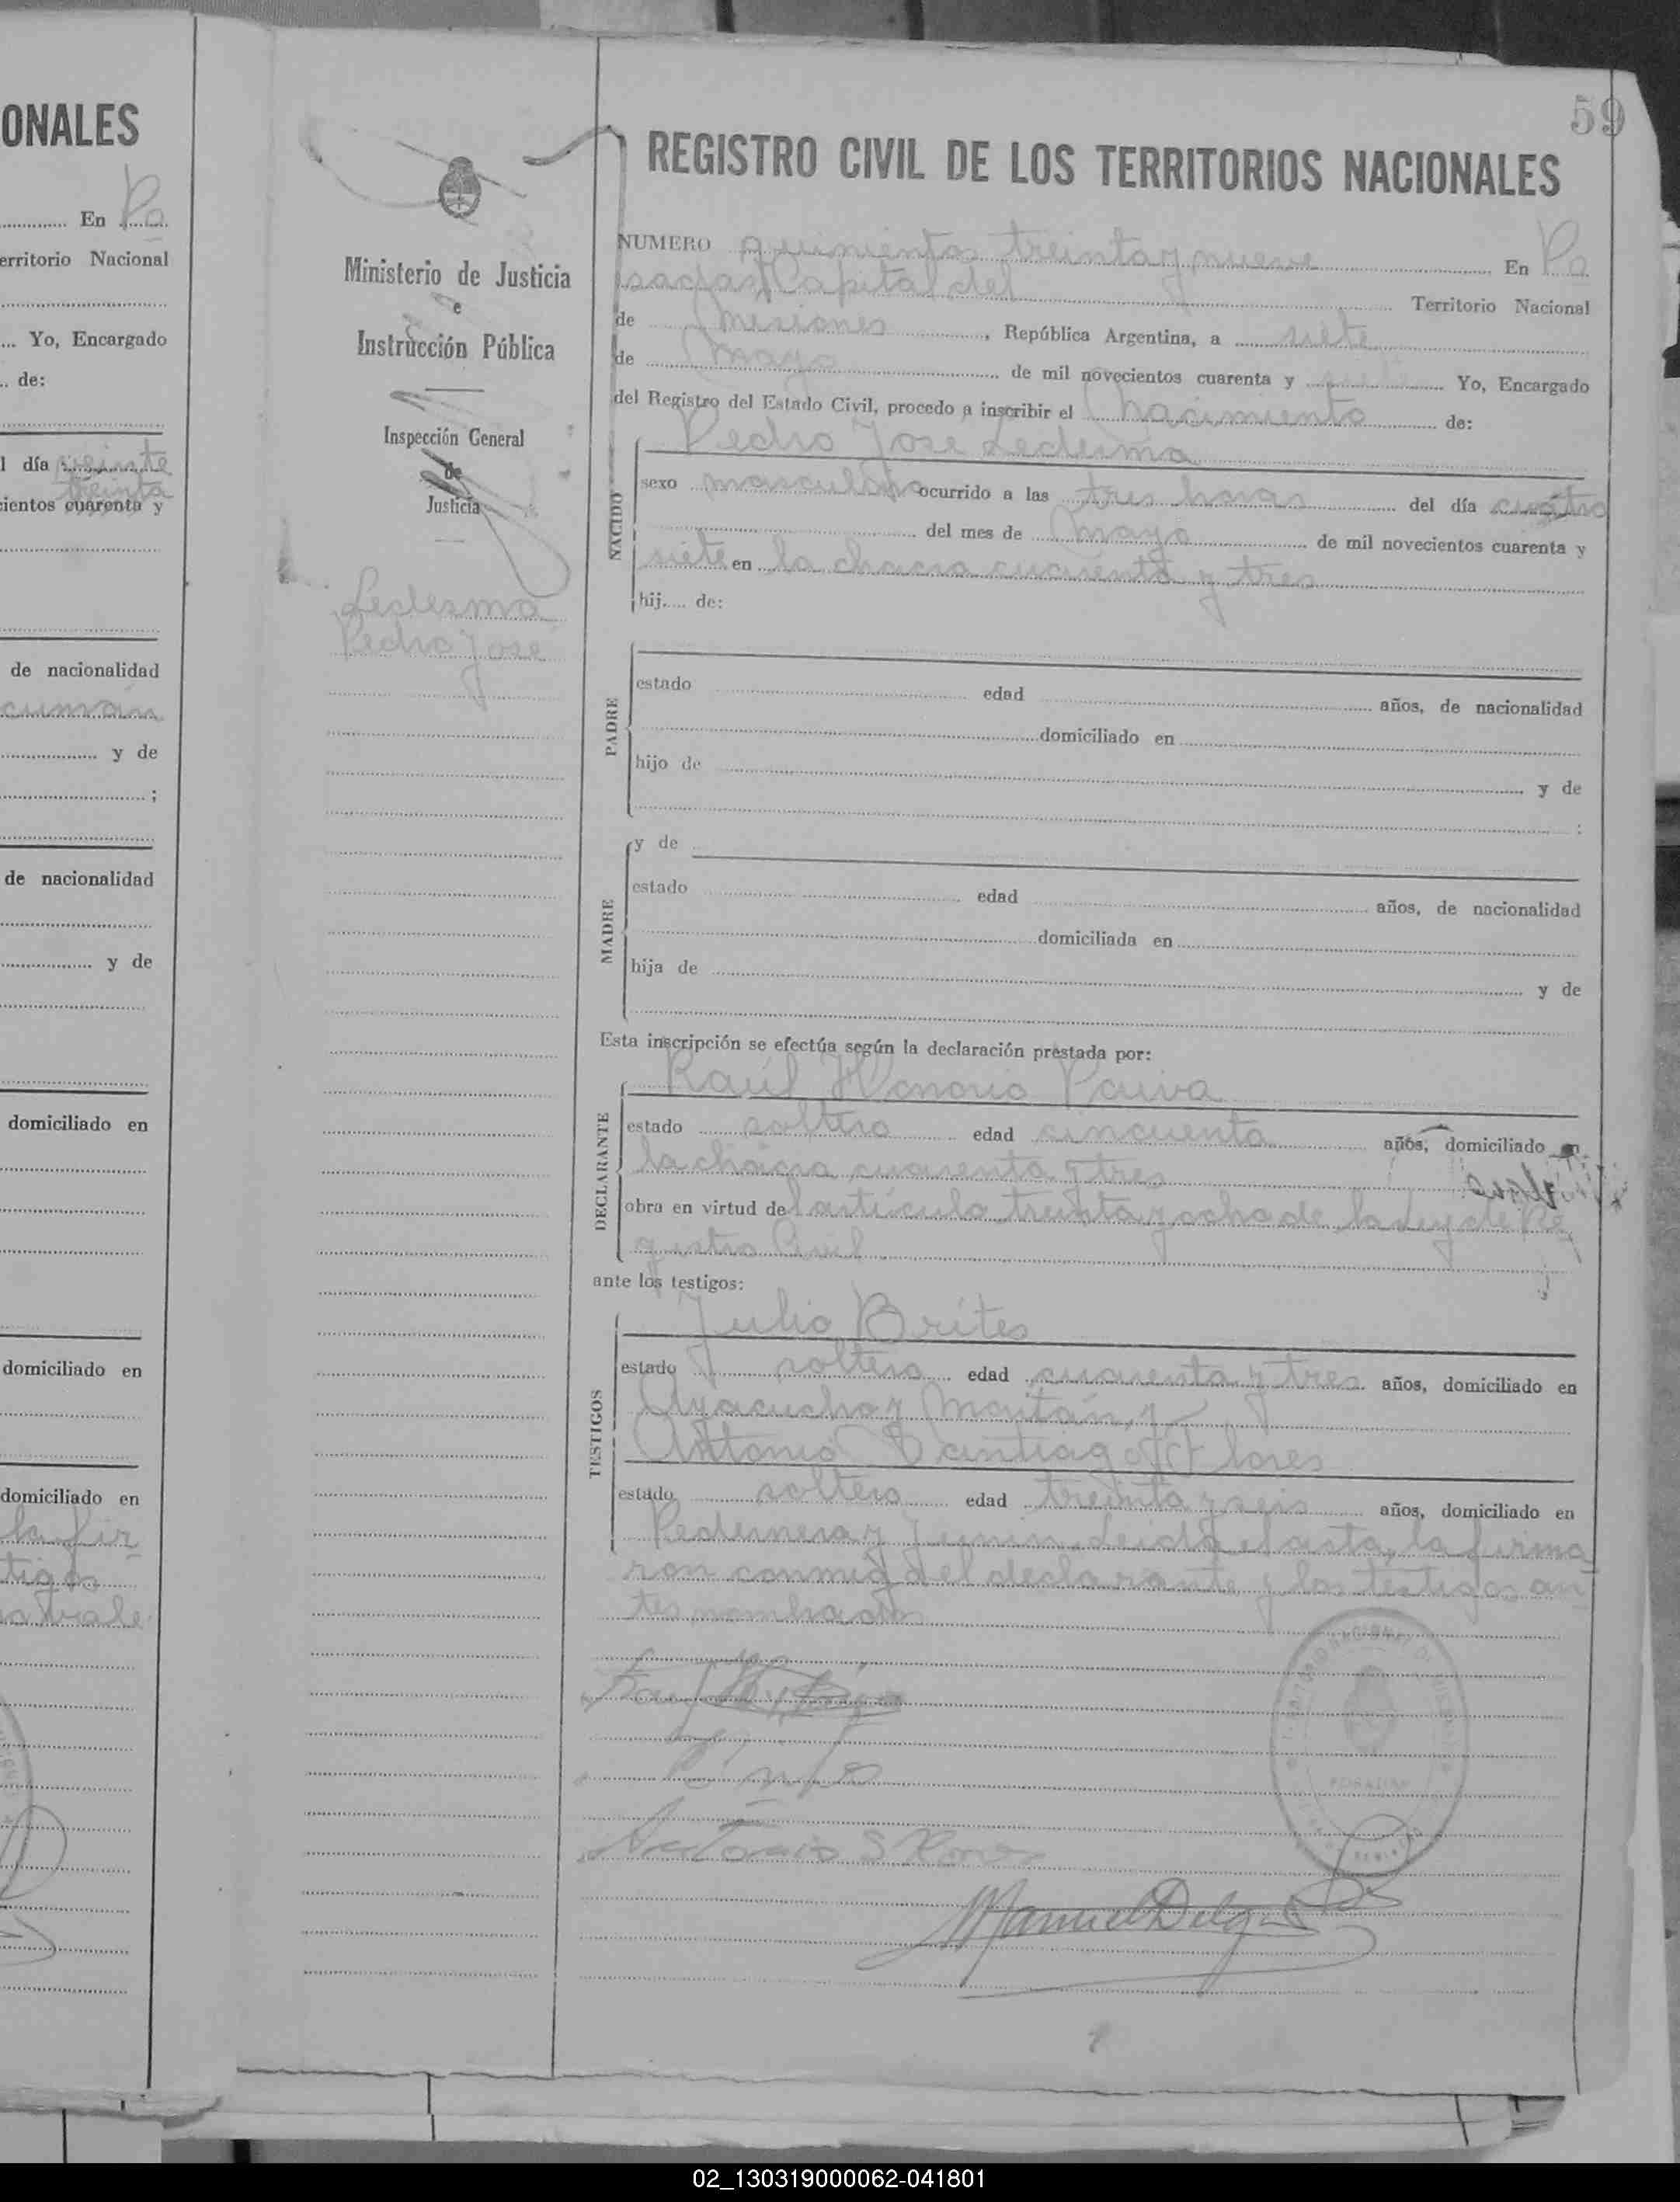 ONALES
En Po
erritorio Nacional
Yo, Encargado
de:
l día veinte
treinta
cientos cuarenta y
de nacionalidad
cumán
y de
;
de nacionalidad
y de
domiciliado en
domiciliado en
domiciliado en
la fir
tigos
vale
59
REGISTRO CIVIL DE LOS TERRITORIOS NACIONALES
Ministerio de Justicia
e
Instrucción Pública
Inspección General
de
Justicia
Ledesma
Pedro José
NUMERO quinientos treinta y nueve En Po
sadas Capital del Territorio Nacional
de Misiones, República Argentina, a siete
de Mayo de mil novecientos cuarenta y siete Yo, Encargado
del Registro del Estado Civil, procedo a inscribir el nacimiento de:
Pedro José Ledesma
NACIDO
sexo masculino ocurrido a las tres horas del día cuatro
del mes de mayo de mil novecientos cuarenta y
siete en la chacra cuarenta y tres
hij.... de:
PADRE
estado edad años, de nacionalidad
domiciliado en
hijo de y de
;
MADRE
y de
estado edad años, de nacionalidad
domiciliada en
hija de y de
Esta inscripción se efectúa según la declaración prestada por:
Raúl Honorio Paiva
DECLARANTE
estado soltero edad cincuenta años, domiciliado en
la chacra cuarenta y tres
obra en virtud del artículo treinta y ocho de la Ley de Re
gistro Civil
ante los testigos:
Julio Brites
TESTIGOS
estado soltero edad cuarenta y tres años, domiciliado en
Ayacucho y
Antonio Santiago Flores
estado soltero edad treinta y seis años, domiciliado en
Pedernera y Junin. Leida el acta, la firma
ron conmigo el declarante y los testigos an
tes nombrados
Antonio S Flores
Manuel Delg
POSADAS
02_130319000062-041801